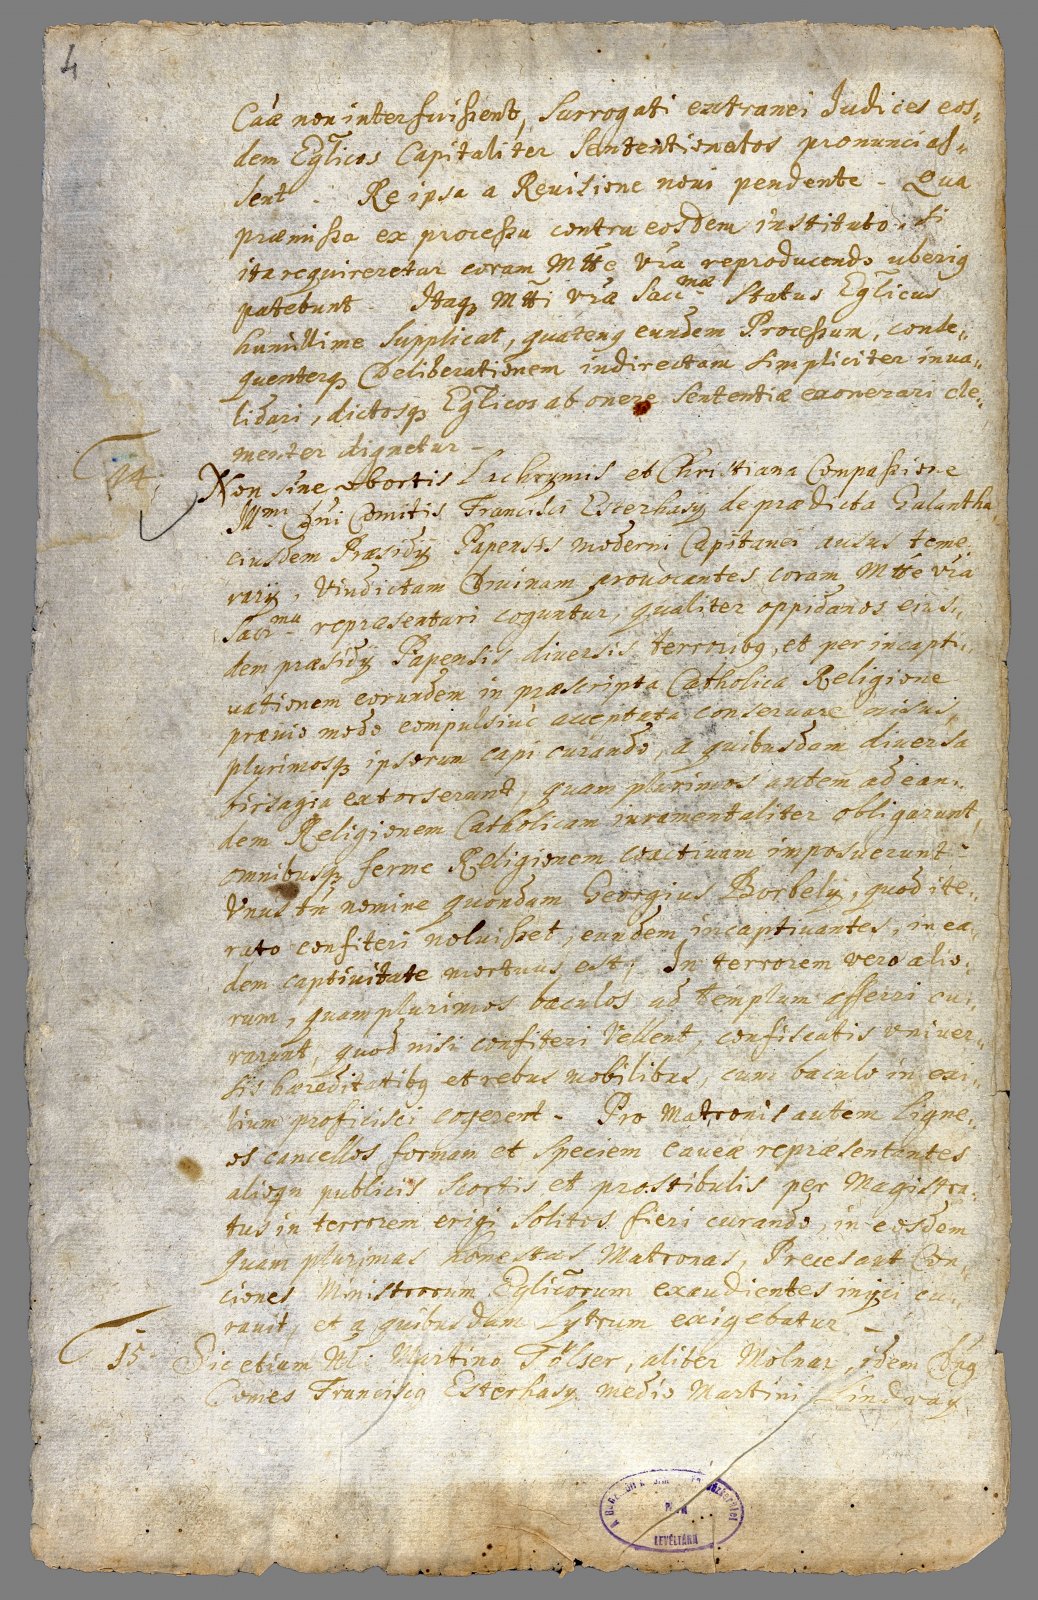 4
Caãe non interfuissent, surrogati extranei Iudices eos„
dem Eglicos Capitaliter Sententionatos pronuncias„
sent - Re ipsa a Reuisione noui pendente - Qua
præmissa ex processu contra eosdem instituto, si
ita requireretur coram Mtte Vra reproducendo uberiq
patebunt - Itaqȝ Mtti Vræ Sacrmæ Status Eglicus
humillime supplicat, quatenq eundem Processum, conse„
quenterqȝ Deliberationem indirectam simpliciter inua„
lidari, dictosqȝ Eglicos ab onere sententiæ exonerari cle„
menter dignetur -
14. Non sine obortis Lachrymis et Christiana Compassione
Illmi Dni Comitis Francisci Eszterhasy de prædicta Galantha,
eiusdem Præsidÿ Papensis moderni Capitanei ausus teme„
rarÿ, Vindictam Diuinam prouocantes coram Mtte Vra
Sacrma repræsentari coguntur, qualiter oppidanos eius„
dem præsidÿ Papensis diuersis terroribq, et per incapti„
uationem eorundem in præscripta Catholica Religione
præuio modo compulsiue acceptata conseruare nisus,
plurimosqȝ ipsorum capi curando, a quibusdam diuersa
birsagia extorserunt, quam plurimos autem ad ean„
dem Religionem Catholicam iuramentaliter obligarunt,
omnibusqȝ ferme Religionem coactiuam imposuerunt -
Vnus tn nomine quondam Georgius Borbely, quod ite„
rato confiteri noluisset, eundem incaptiuantes, in ea„
dem captiuitate mortuus est; In terrorem vero alio„
rum, quamplurimos baculos ad templum afferri cu„
rarunt, quod nisi confiteri Vellent, confiscatis vniuer„
sis hæreditatibq et rebus mobilibus, cum baculo in exi„
lium proficisci cogerent - Pro Matronis autem ligne„
os cancellos formam et speciem caueæ repræsentantes
alioqn publicis scortis et prostibulis per Magistra„
tus in terrorem erigi solitos fieri curando, in eosdem
quam plurimas honestas Matronas, Preces aut Con„
ciones Ministrorum Eglicorum exaudientes inÿci cu„
rauit, et a quibusdam Lytrum exigebatur -
15. Sic etiam Martino Tölser, aliter Molnar, idem Dnq
Comes Franciscq Esterhasy medio Martini Lindvay
LEVÉLTÁRA